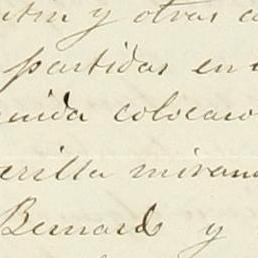 y otras
partidas en
colocaro
erilla miran
Bernardo y